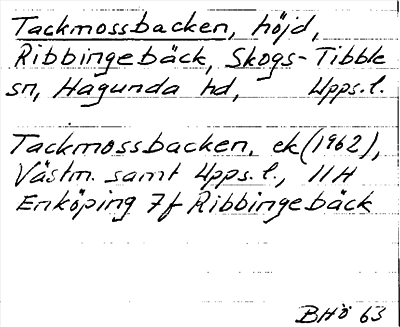 Tackmossbacken, höjd,
Ribbingebäck, Skogs-Tibble
sn, Hagunda hd, Upps.l.
Tackmossbacken, ek (1962),
Västm. samt Upps.l., 11H
Enköping 7f Ribbingebäck
BHÖ 63